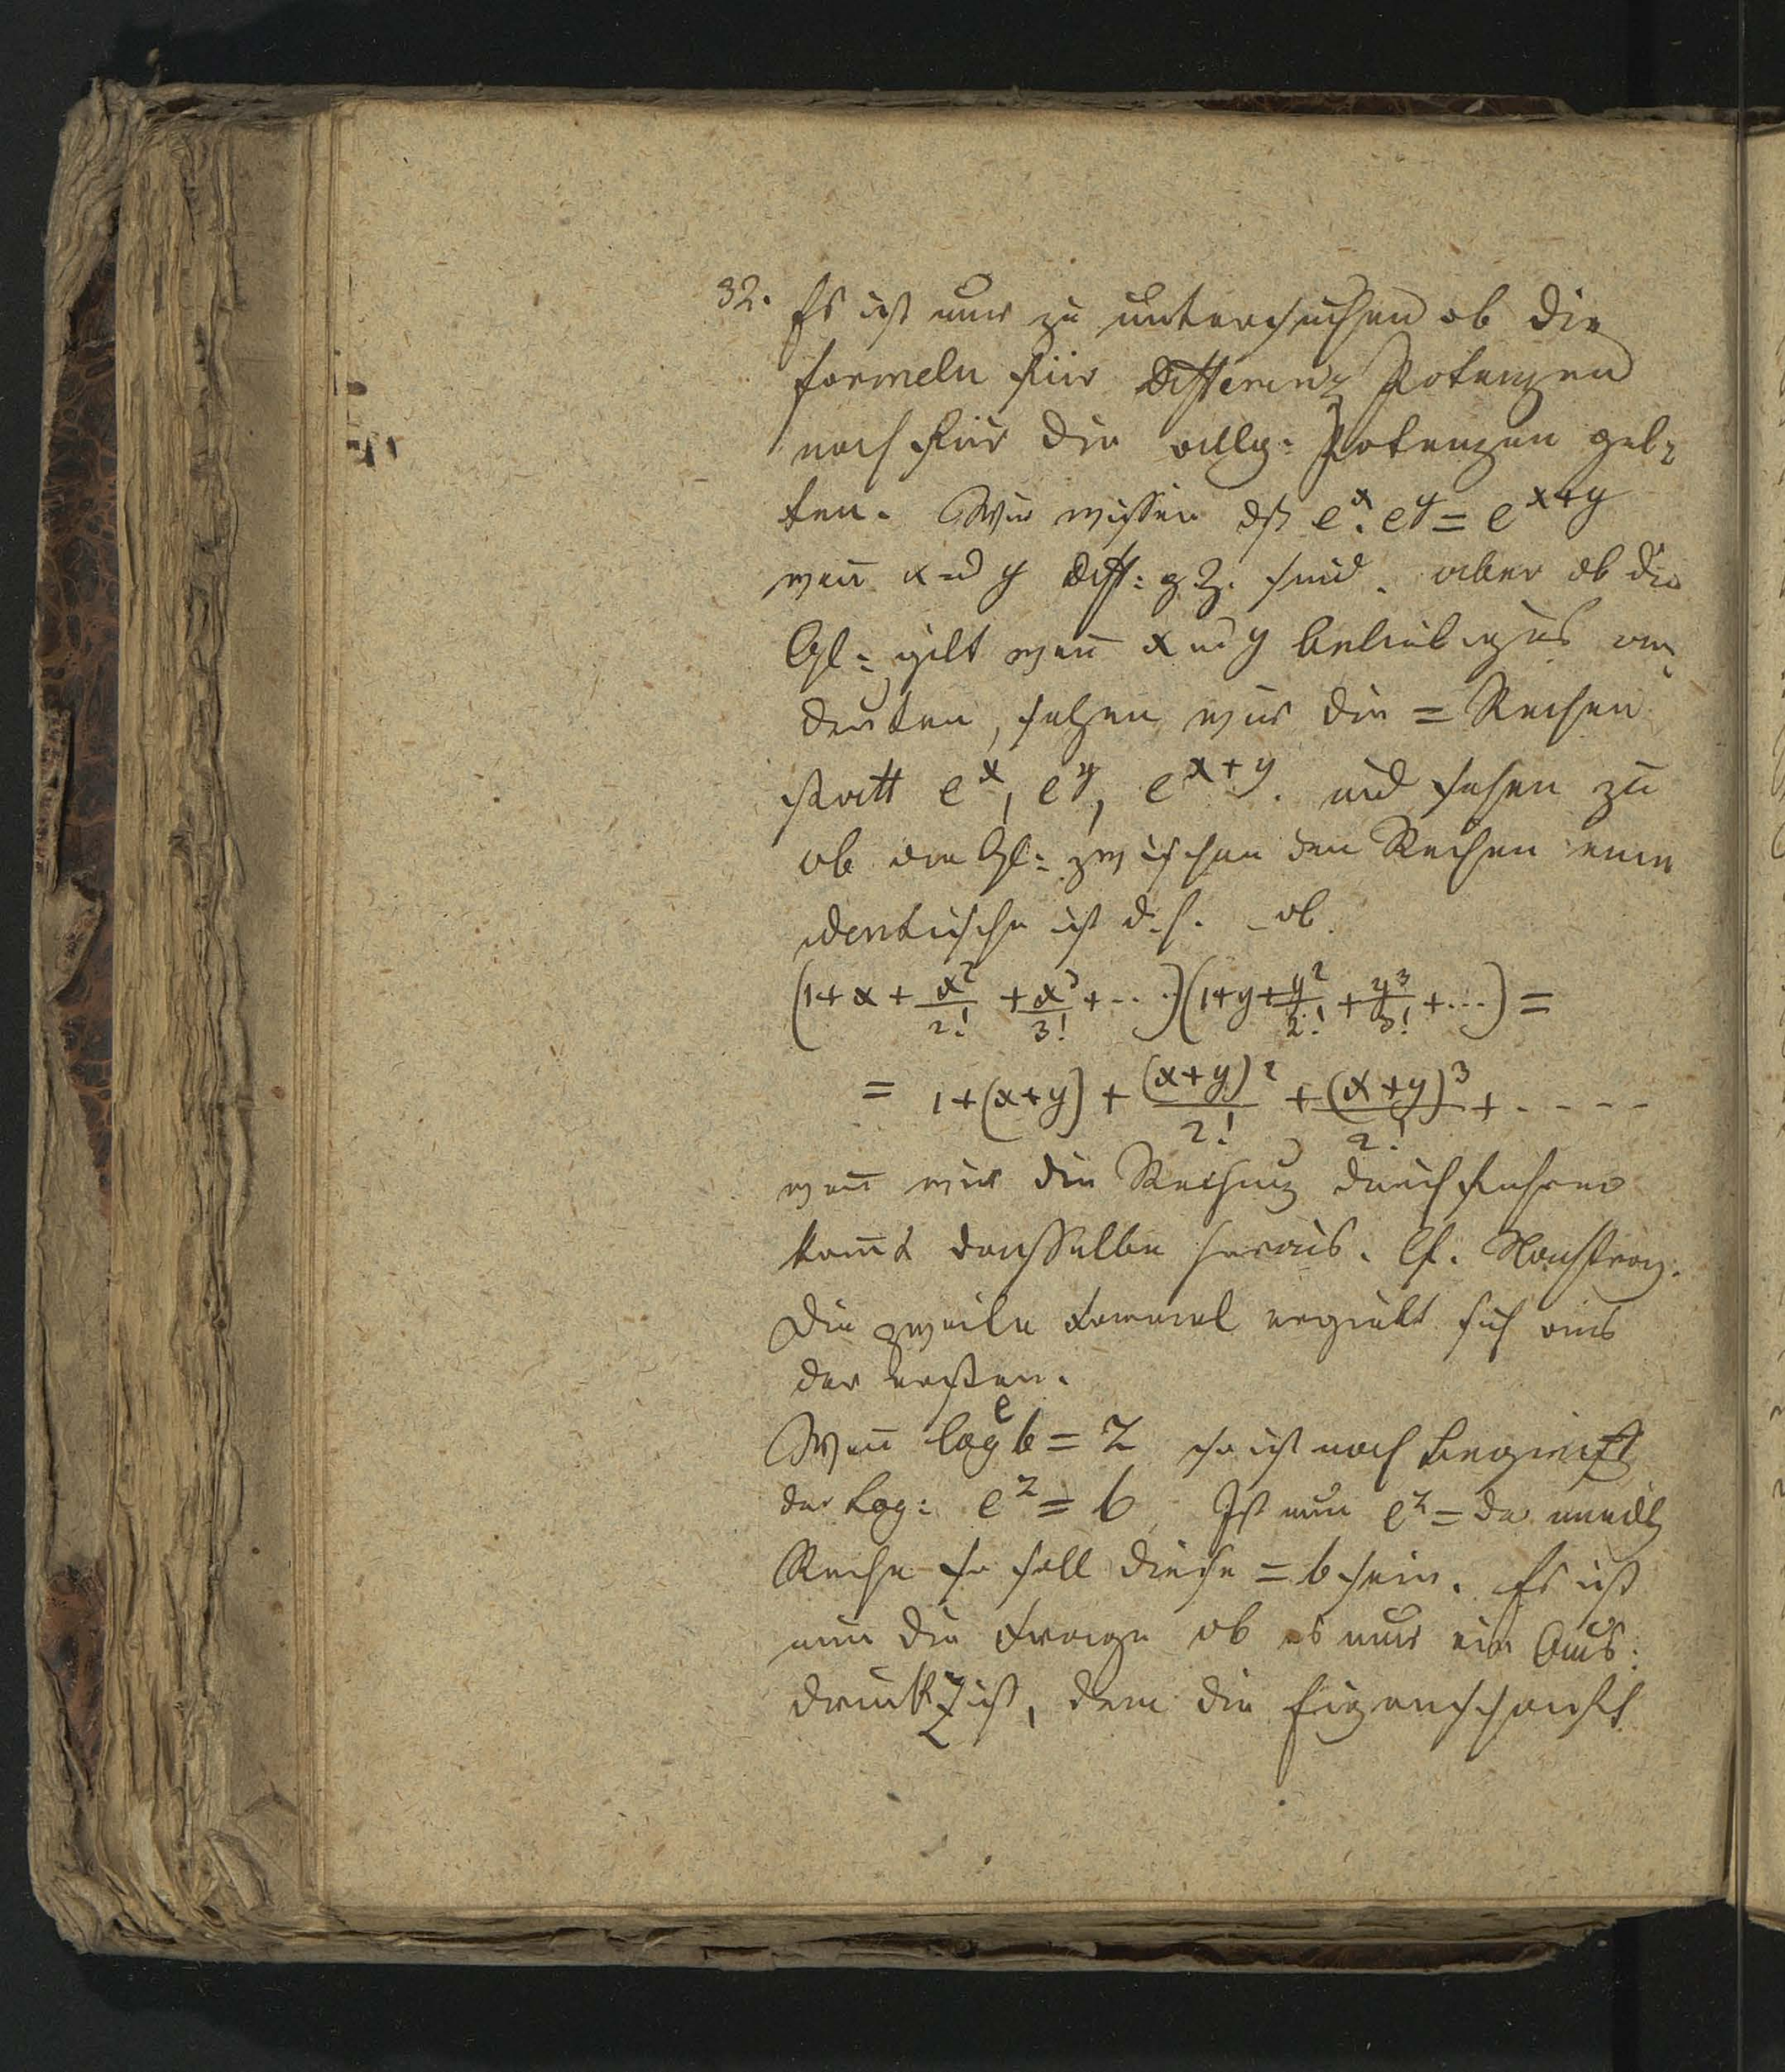 32. Es ist nur zu untersuchen ob die
formeln für Differenz Potenzen
noch für die allg: Potenzen gel-
ten. Wir wissen dß e^x. e^y = e^{x+y}
weñ x u y Diff: gZ. sind. aber ob die
Gl: gilt weñ x u y beliebiges an-
deuten, setzen wir die = Reihen
statt e^x, e^y, e^{x+y}. und sehen zu
ob die Gl: zwischen den Reihen eine
identische ist d. h. ob
(1+x+\frac{x^2}{2!}+\frac{x^3}{3!}+....)(1+y+\frac{y^2}{2!}+\frac{y^3}{3!}+...)=
= 1+(x+y)+\frac{(x+y)^2}{2!}+\frac{(x+y)^3}{2!}+.----
weñ wir die Rechnung durchführen
kom̃t dasselbe heraus. Cf.
Die zweite Formel ergiebt sich aus
der ersten.
Weñ log^e b = z so ist nach Begriff
der Log: e^z = b Ist nun e^z = der unendl
Reihe so soll diese = b sein. Es ist
nun die Frage ob es nur ein Aus:
druck z ist, dem die Eigenschaft